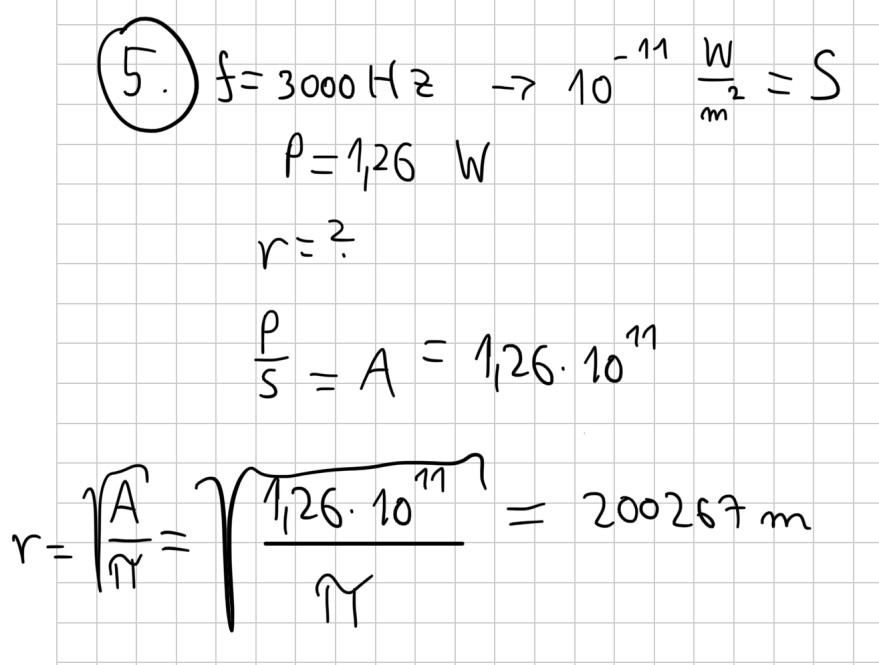 5. f = 3000 Hz → 10⁻¹¹ W/m² = S
P = 1,26 W
r = ?
P/S = A = 1,26 · 10¹¹
r = √(A/π) = √(1,26 · 10¹¹/π) = 200267 m